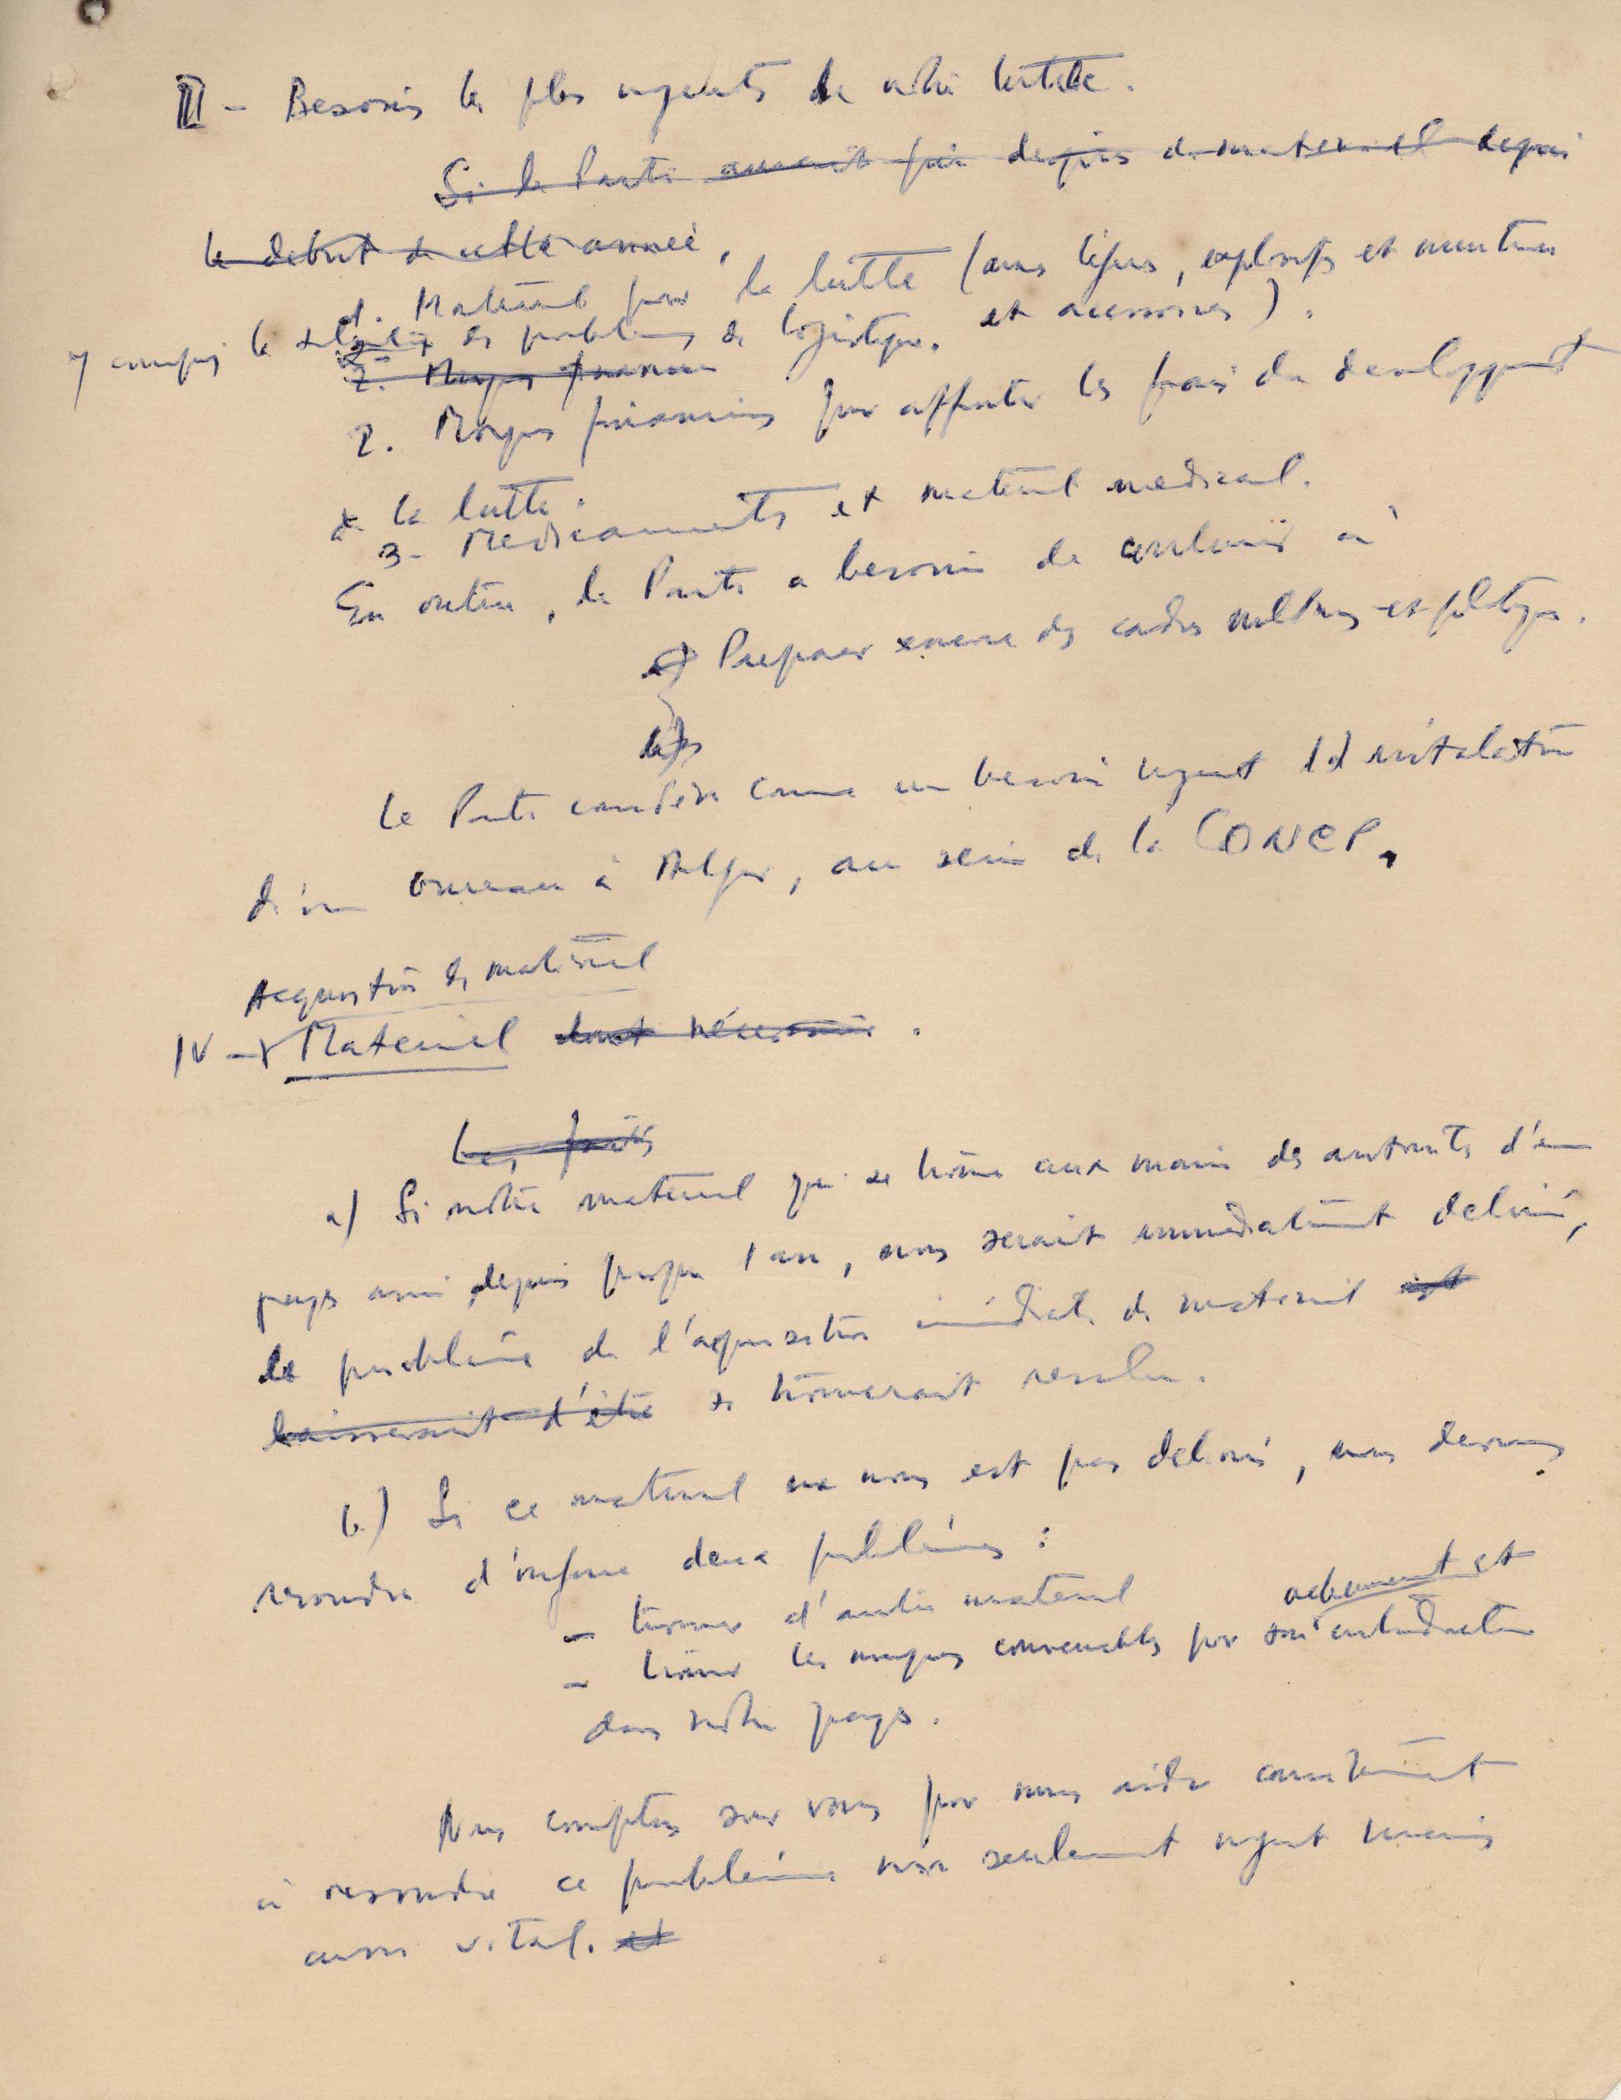 III - Besoins les plus urgents de notre lutte.
Si le Parti aurait pu du matériel depuis
le debut de cette année,
1. Matériel pour la lutte (armes légères, explosifs et munitions
et accessoires).
y compris la solution des problèmes de logistique.
2. Moyens financiers
2. Moyens financiers pour affronter les frais du developpement
de la lutte.
3- Medicaments et matériel medical.
En outre, le Parti a besoin de continuer à
a) Preparer encore des cadres militaires et politiques.
b)
Le Parti considère comme un besoin urgent l'installation
d'un bureau à Alger, au sein de la CONCP.
Acquisition de matériel
IV - Materiel dont nécessaire.
Les faits
a) Si notre matériel qui se trouve aux mains des autorités d'un
pays ami depuis presque 1 an, nous serait immediatement delivré,
le problème de l'aquisition immédiate de materiel est
laisserait d'être se trouverait resolu.
b) Si ce materiel ne nous est pas delivré, nous devrons
resoudre d'urgence deux problèmes :
- trouver d'autre materiel
- trouver les moyens convenables pour son acheminement et introduction
dans notre pays.
Nous comptons sur vous pour nous aider concrètement
à resoudre ce problème non seulement urgent mais
aussi vital. et